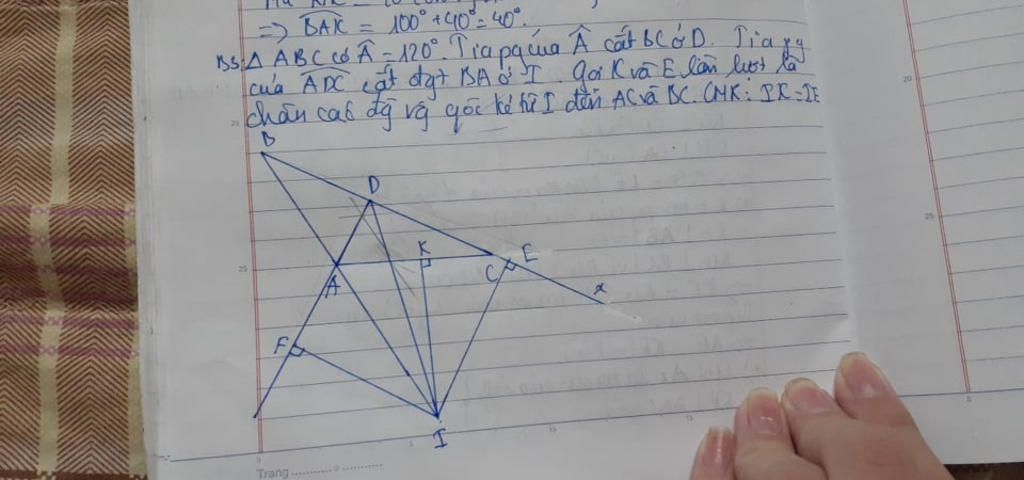 => BAK = 100° + 40° = 40°.
B5: Δ ABC có Â = 120°. Tia pg của Â cắt BC ở D. Tia
của ADC cắt đgt BA ở I. Gọi K và E lần lượt là
chân các đg vg góc kẻ từ I đến AC và BC. CMR: IK = IE
B
D
K
E
C
A
x
F
I
25
20
25
Trang